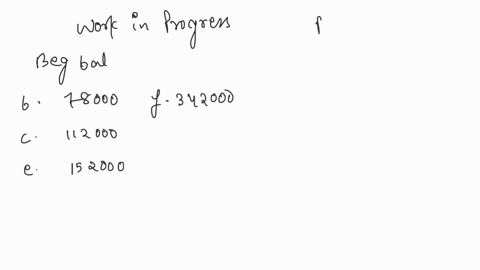 Work in Progress
Beg bal
b. 78000 f. 342000
c. 112000
e. 152000